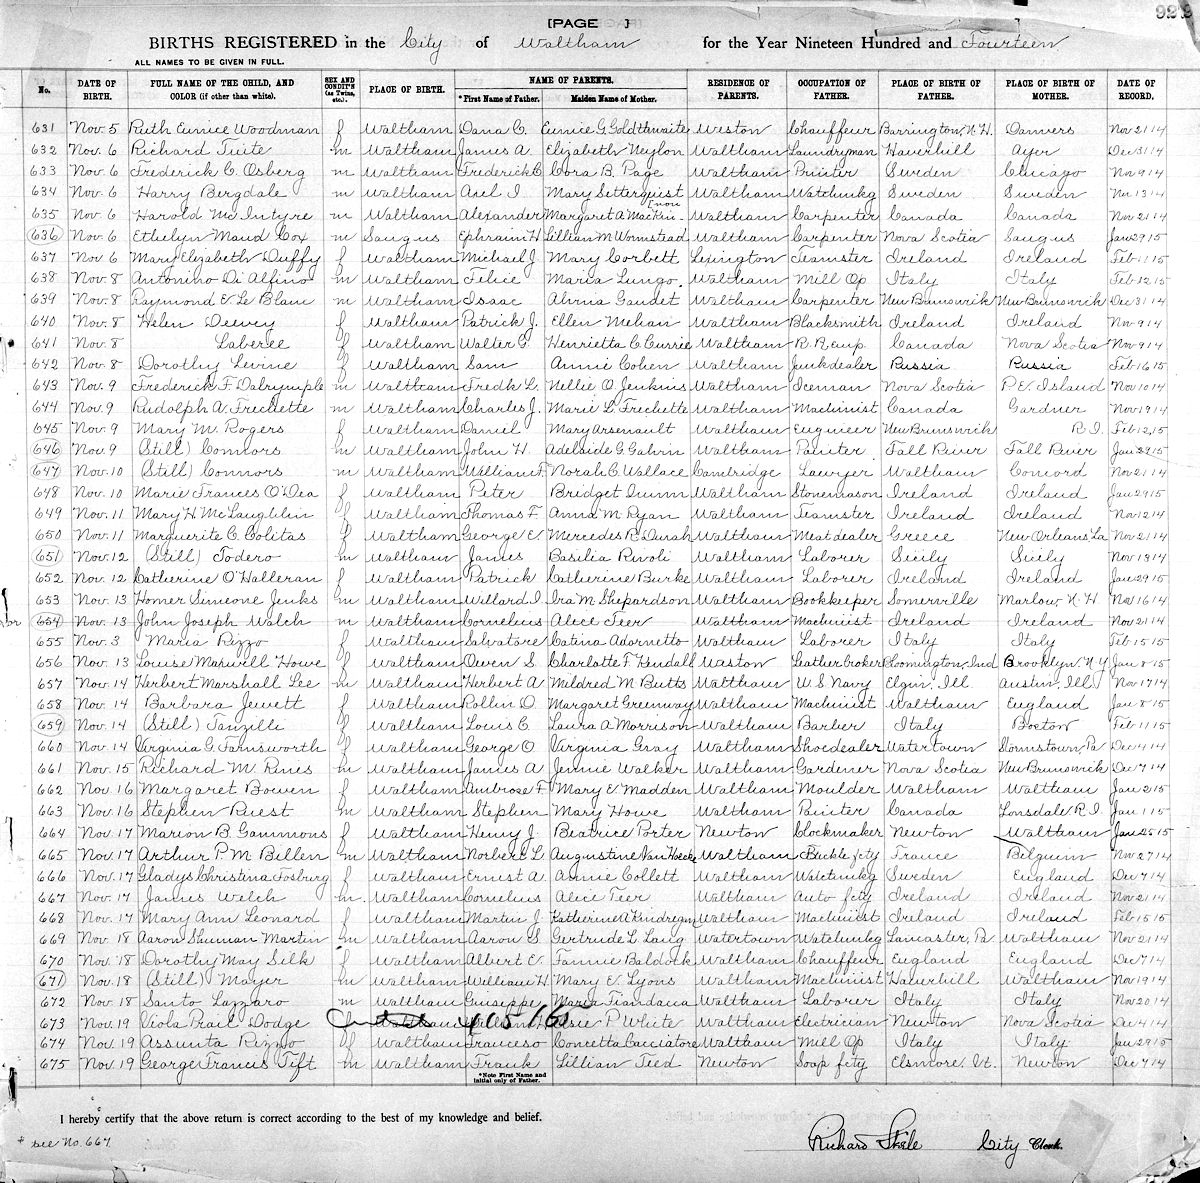 [PAGE ]
929
BIRTHS REGISTERED in the City of Waltham for the Year Nineteen Hundred and Fourteen
ALL NAMES TO BE GIVEN IN FULL.
No. DATE OF BIRTH. FULL NAME OF THE CHILD, AND COLOR (if other than white). SEX AND CONDIT'N (as Twins, etc.). PLACE OF BIRTH. NAME OF PARENTS. *First Name of Father. Maiden Name of Mother. RESIDENCE OF PARENTS. OCCUPATION OF FATHER. PLACE OF BIRTH OF FATHER. PLACE OF BIRTH OF MOTHER. DATE OF RECORD.
631 Nov. 5 Ruth Eunice Woodman f Waltham Dana C. Eunice G. Goldthwaite Weston Chauffeur Barrington, N.H. Danvers Nov 21 14
632 Nov. 6 Richard Tuite m Waltham James A Elizabeth Neylon Waltham Laundryman Haverhill Ayer Dec 31 14
633 Nov. 6 Frederick C. Osberg m Waltham Frederick C. Cora B. Page Waltham Painter Sweden Chicago Nov 9 14
634 Nov. 6 Harry Bergdale m Waltham Axel I. Mary Setterquist Waltham Watchmkg Sweden Sweden Nov 13 14
635 Nov. 6 Harold McIntyre m Waltham Alexander Margaret A. MacKinnon Waltham Carpenter Canada Canada Nov 21 14
636 Nov. 6 Ethelyn Maud Cox m Saugus Ephraim H Lillian M Wormstead Waltham Carpenter Nova Scotia Saugus Jan 29 15
637 Nov 6 Mary Elizabeth Duffy f Waltham Michael J. Mary Corbett Lexington Teamster Ireland Ireland Feb 11 15
638 Nov. 8 Antonino Di Alfino m Waltham Felice Maria Lungo. Waltham Mill Op Italy Italy Feb 12. 15
639 Nov. 8 Raymond E. Le Blanc m Waltham Isaac Alvina Gaudet Waltham Carpenter New Brunswick New Brunswick Dec 31 14
640 Nov. 8 Helen Dewey f Waltham Patrick J. Ellen Mehan Waltham Blacksmith Ireland Ireland Nov 9 14
641 Nov. 8 Laberee f Waltham Walter G. Henrietta C. Currie Waltham R. R emp Canada Nova Scotia Nov 9 14
642 Nov. 8 Dorothy Levine f Waltham Sam Annie Cohen Waltham Junkdealer Russia Russia Feb 16 15
643 Nov. 9 Frederick F. Dalrymple m Waltham Fredk L. Nellie O. Jenkins Waltham Iceman Nova Scotia P.E. Island Nov 10 14
644 Nov. 9 Rudolph A. Frechette m Waltham Charles J. Marie L. Frechette Waltham Machinist Canada Gardner Nov 19 14
645 Nov. 9 Mary M. Rogers f Waltham Daniel Mary Arsenault Waltham Engineer New Brunswick R I. Feb 12, 15
646 Nov. 9 (Still) Connors m Waltham John H. Adelaide G. Galvin Waltham Painter Fall River Fall River Jan 29 15
647 Nov. 10 (Still) Connors m Waltham William F. Norah C. Wallace Cambridge Lawyer Waltham Concord Nov 21 14
648 Nov. 10 Marie Frances O'Dea f Waltham Peter Bridget Quinn Waltham Stonemason Ireland Ireland Jan 29 15
649 Nov. 11 Mary H. McLaughlin f Waltham Thomas F. Anna M. Ryan Waltham Teamster Ireland Ireland Nov 12 14
650 Nov. 11 Marguerite C. Colitas f Waltham George E. Mercedes R. Waltham Meat dealer Greece New Orleans, La Nov 21 14
651 Nov. 12 (Still) Todero m Waltham James Basilia Rivoli Waltham Laborer Sicily Sicily Nov 13 14
652 Nov. 12 Catherine O'Halleran f Waltham Patrick Catherine Burke Waltham Laborer Ireland Ireland Jan 29 15
653 Nov. 13 Homer Simeone Jenks m Waltham Willard I. Iva M. Shepardson Waltham Bookkeeper Somerville Marlow, N. H. Nov 16 14
654 Nov. 13 John Joseph Walch m Waltham Cornelius Alice Teer Waltham Machinist Ireland Ireland Nov 21 14
655 Nov. 3 Maria Rizzo f Waltham Salvatore Catina Adornetto Waltham Laborer Italy Italy Feb 15 15
656 Nov. 13 Louise Maxwell Howe f Waltham Owen S. Charlotte F. Kendall Weston Leather broker Bloomington, Ind Brooklyn, N.Y Jan 8 15
657 Nov. 14 Herbert Marshall Lee m Waltham Herbert A. Mildred M. Butts Waltham U.S Navy Elgin, Ill. Austin, Ill. Nov 17 14
658 Nov. 14 Barbara Jewett f Waltham Rollin O. Margaret Greenway Waltham Machinist Waltham England Jan 8 15
659 Nov. 14 (Still) Tanzilli f Waltham Louis C. Laura A. Morrison Waltham Barber Italy Boston Feb 11 15
660 Nov. 14 Virginia G. Farnsworth f Waltham George O. Virginia Gray Waltham Shoedealer Watertown Dec 4 14
661 Nov. 15 Richard M. Rines m Waltham James A Jennie Walker Waltham Gardener Nova Scotia New Brunswick Dec 7 14
662 Nov. 16 Margaret Bowen f Waltham Ambrose F. Mary E. Madden Waltham Moulder Waltham Waltham Jan 2 15
663 Nov. 16 Stephen Priest m Waltham Stephen Mary Howe Waltham Painter Canada Lonsdale R.I. Jan 1 15
664 Nov. 17 Marion B. Gammons f Waltham Henry J. Beatrice Porter Newton Clockmaker Newton Waltham Jan 25 15
665 Nov. 17 Arthur P.M. Billen m Waltham Norbert L. Augustine Van Hoecke Waltham Buckle fcty France Belguim Nov 27 14
666 Nov. 17 Gladys Christina Fosburg f Waltham Ernest A. Annie Collett Waltham Watchmkg Sweden England Dec 7 14
667 Nov. 14 James Welch m. Waltham Cornelius Alice Teer Waltham Auto fcty Ireland Ireland Nov 21 14
668 Nov. 17 Mary Ann Leonard f Waltham Martin J. Katherine A. Kindregan Waltham Machinist Ireland Ireland Feb 15 15
669 Nov. 18 Aaron Shuman Martin m Waltham Aaron S. Gertrude L. Lang Watertown Watchmkg Lancaster, Pa Waltham Nov 21 14
670 Nov. 18 Dorothy May Silk f Waltham Albert E. Fannie Baldock Waltham Chauffeur England England Dec 7 14
671 Nov. 18 (Still) Mayer m Waltham William H. Mary E. Lyons Waltham Machinist Haverhill Waltham Nov 19 14
672 Nov. 18 Santo Lazzaro m Waltham Guiseppe Maria Waltham Laborer Italy Italy Nov 20 14
673 Nov. 19 Viola Prail Dodge f Waltham 405 165 Elsie P. White Waltham Electrician Newton Nova Scotia Dec 4 14
674 Nov. 19 Assunta Rizzo f Waltham Franceso Concetta Cacciatore Waltham Mill Op Italy Italy Jan 29 15
675 Nov. 19 George Francis Tift m Waltham Frank Lillian Tied Newton Soap fcty Elsmore, Vt. Newton Dec 7 14
*Note First Name and initial only of Father.
I hereby certify that the above return is correct according to the best of my knowledge and belief.
* see No. 667
Richard Skele City Clerk.